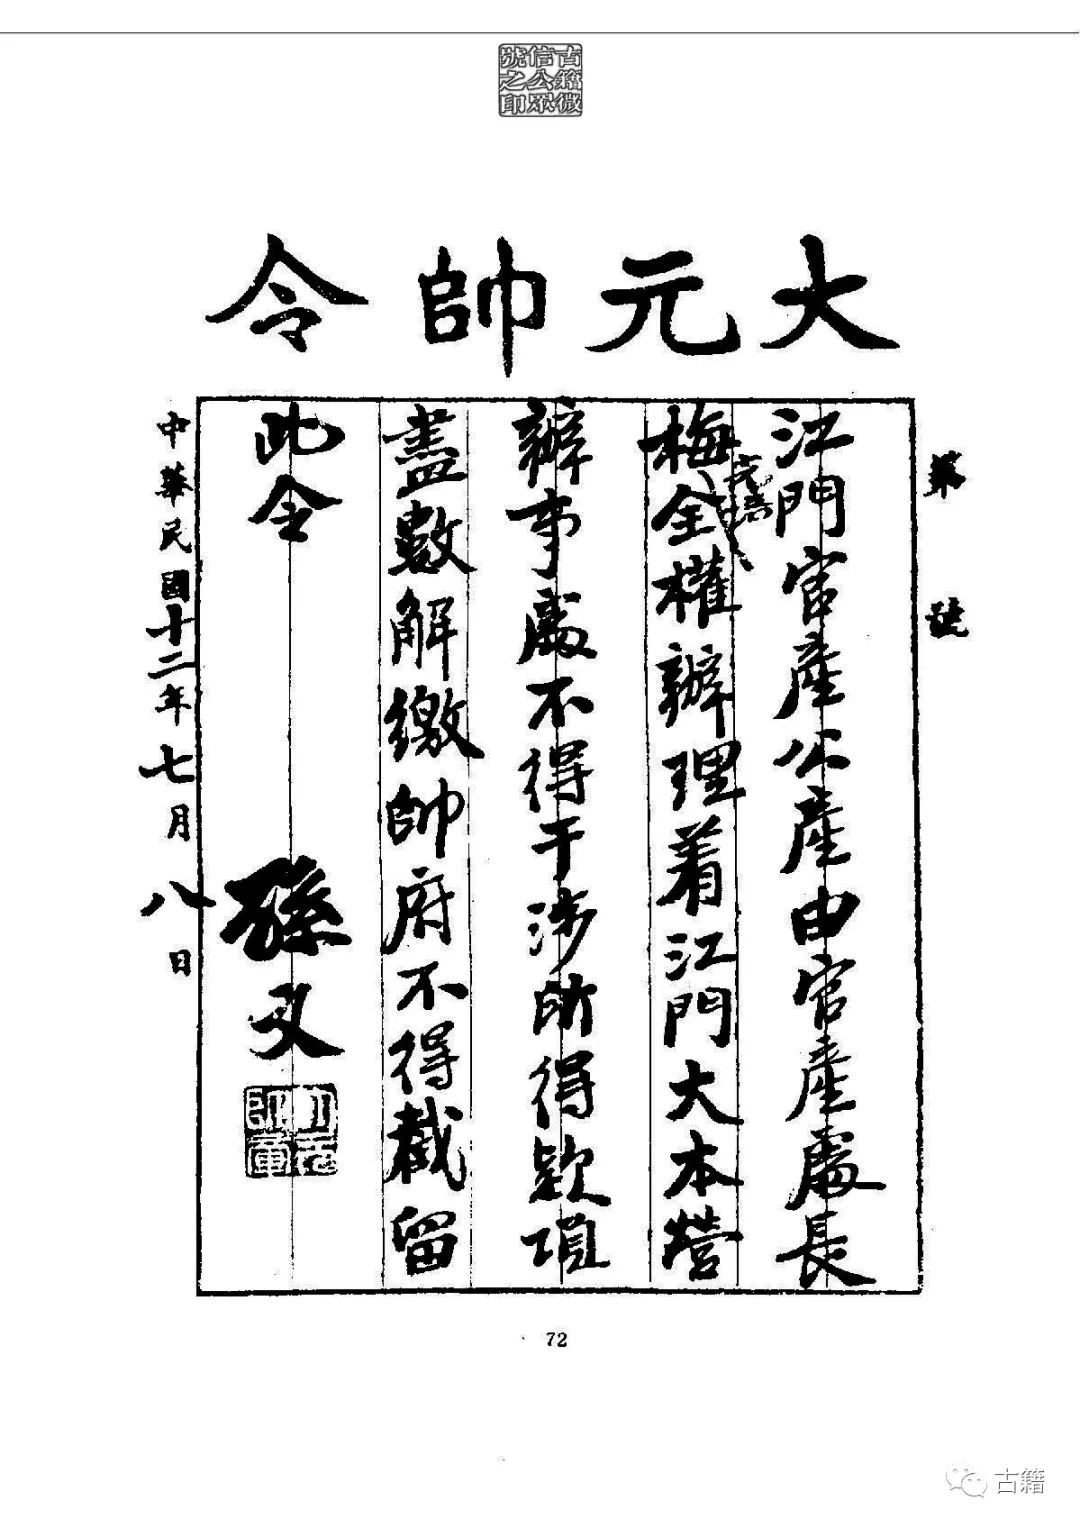 古籍微
信公眾
號之印
大元帥令
第 號
江門官產公產由官產處長
梅光培全權辦理着江門大本營
辦事處不得干涉所得款項
盡數解繳帥府不得截留
此令
孫文
大元帥章
中華民國十二年七月八日
72
古籍